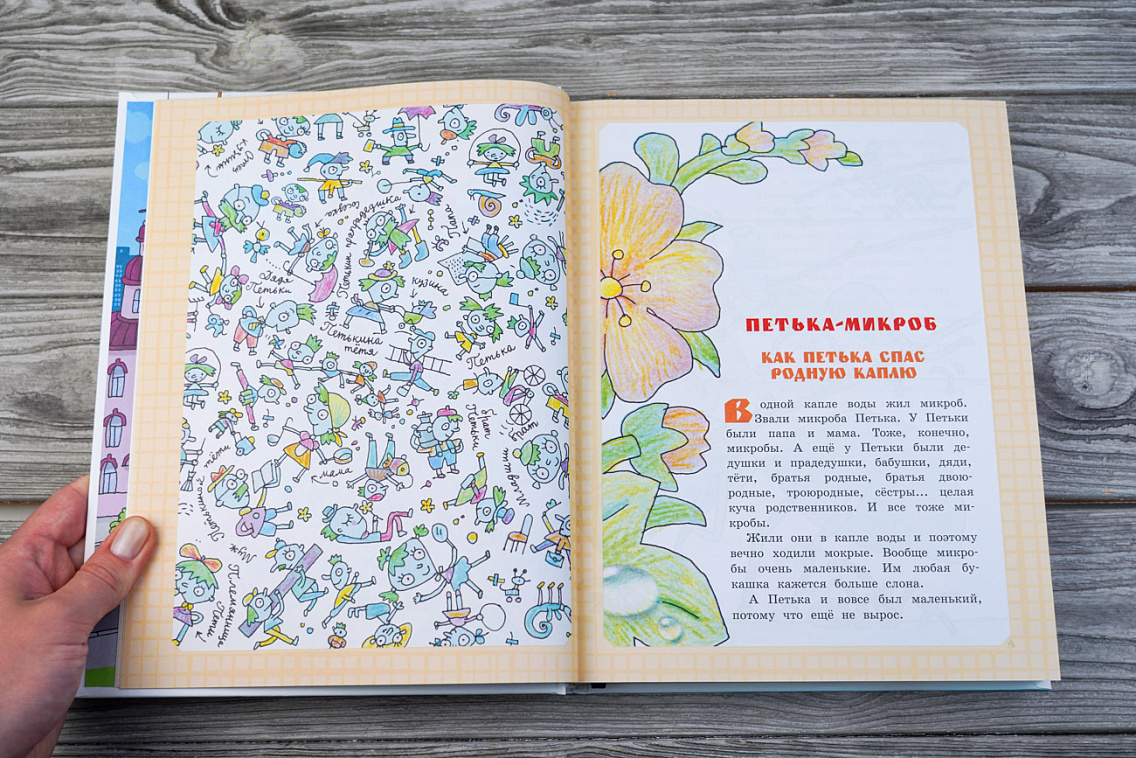 Отец
кузины
"Петькин прапрадедушка"
Папа
Дядя
Петьки
кузина
Петькина
тётя
Петька
брат
Петьки
Младший
брат
мама
тёти
Муж
Племянница
Пети
ПЕТЬКА-МИКРОБ
КАК ПЕТЬКА СПАС
РОДНУЮ КАПЛЮ
В одной капле воды жил микроб.
Звали микроба Петька. У Петьки
были папа и мама. Тоже, конечно,
микробы. А ещё у Петьки были де-
душки и прадедушки, бабушки, дяди,
тёти, братья родные, братья двою-
родные, троюродные, сёстры... целая
куча родственников. И все тоже ми-
кробы.
Жили они в капле воды и поэтому
вечно ходили мокрые. Вообще микро-
бы очень маленькие. Им любая бу-
кашка кажется больше слона.
А Петька и вовсе был маленький,
потому что ещё не вырос.